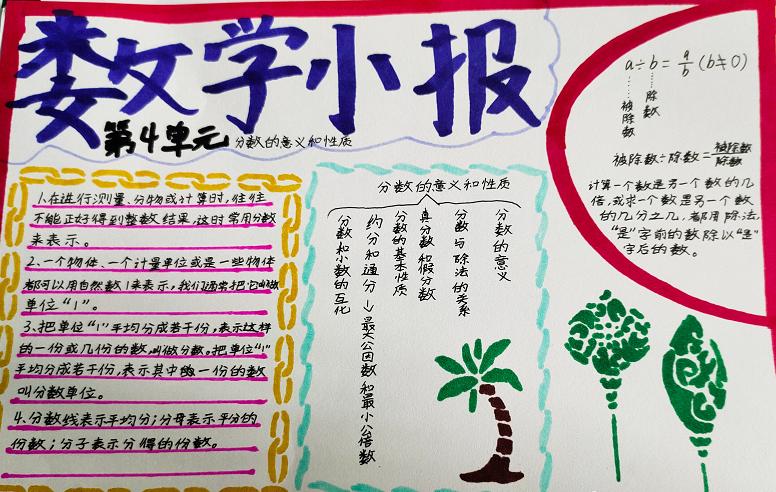 数学小报
第4单元 分数的意义和性质
1.在进行测量、分物或计算时,往往
不能正好得到整数结果,这时常用分数
来表示。
2.一个物体、一个计量单位或是一些物体
都可以用自然数1来表示,我们通常把它叫做
单位“1”。
3.把单位“1”平均分成若干份,表示这样
的一份或几份的数,叫做分数。把单位“1”
平均分成若干份,表示其中的一份的数
叫分数单位。
4.分数线表示平均分;分母表示平分的
份数;分子表示分得的份数。
分数的意义和性质
分数的意义
分数与除法的关系
真分数和假分数
分数的基本性质
约分和通分→最大公因数和最小公倍数
分数和小数的互化
a÷b=a/b(b≠0)
被除数
除数
被除数÷除数=被除数/除数
计算一个数是另一个数的几
倍,或求一个数是另一个数
的几分之几,都用除法,
“是”字前的数除以“是”
字后的数。